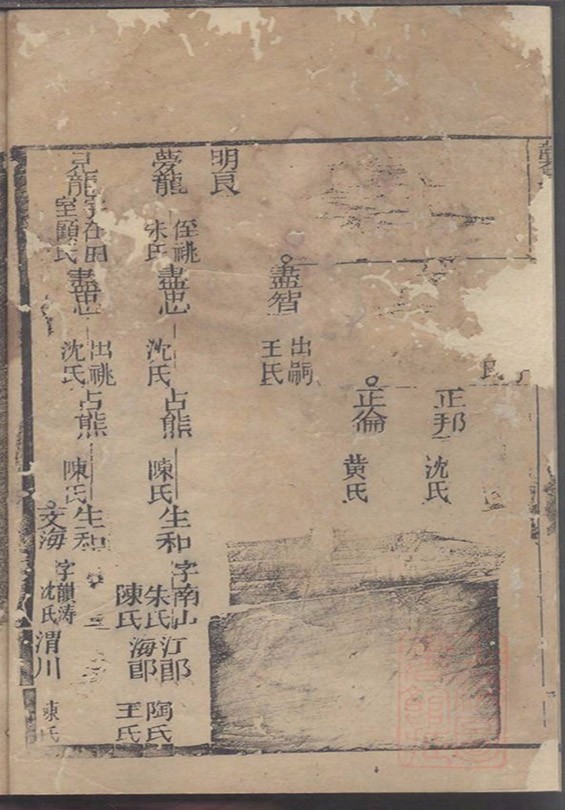 正邦
沈氏
正倫
黃氏
盡智
出嗣
王氏
明良
夢龍
侄祧
朱氏
盡忠
沈氏
占熊
陳氏
生和
字南山
朱氏
陳氏
江郎
陶氏
海郎
王氏
見龍
字在田
室顧氏
盡忠
出祧
沈氏
占熊
陳氏
生和
文海
字韻濤
沈氏
渭川
陳氏